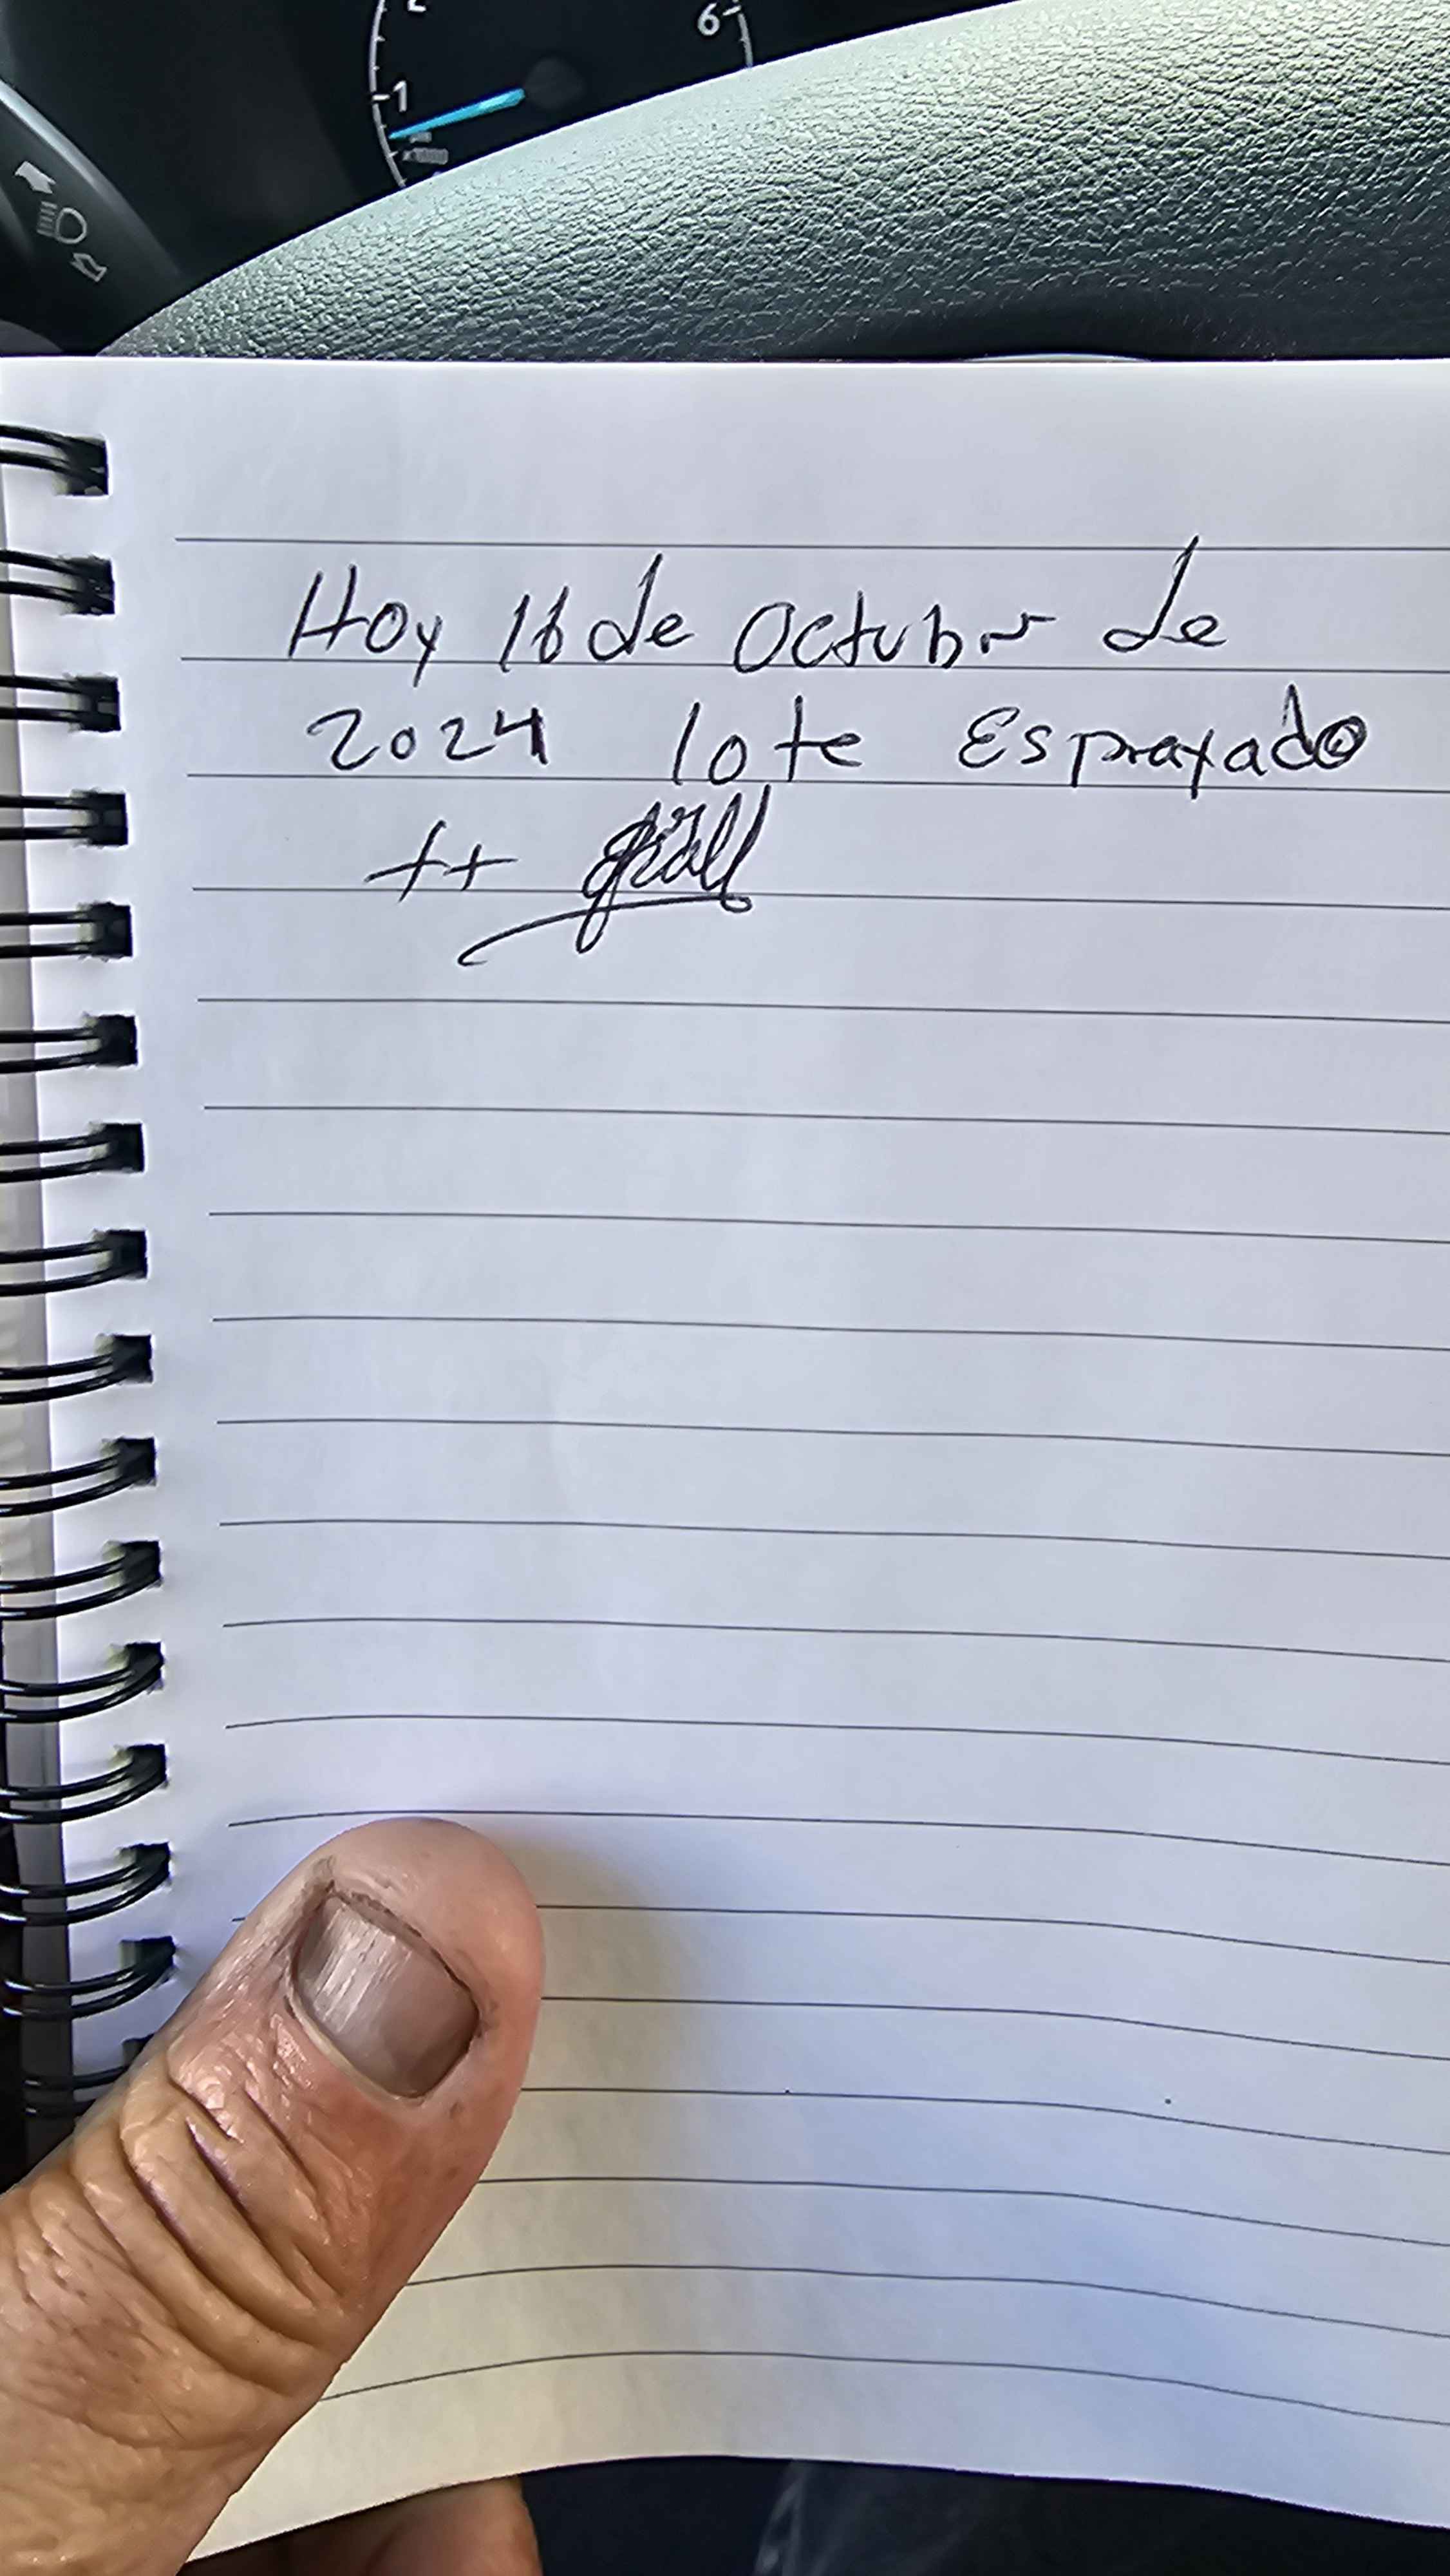 2
6
1
Hoy 16 de Octubr de
2024 lote Esprayado
++